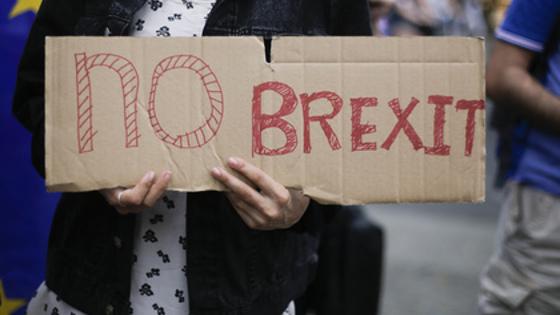 NO BREXIT